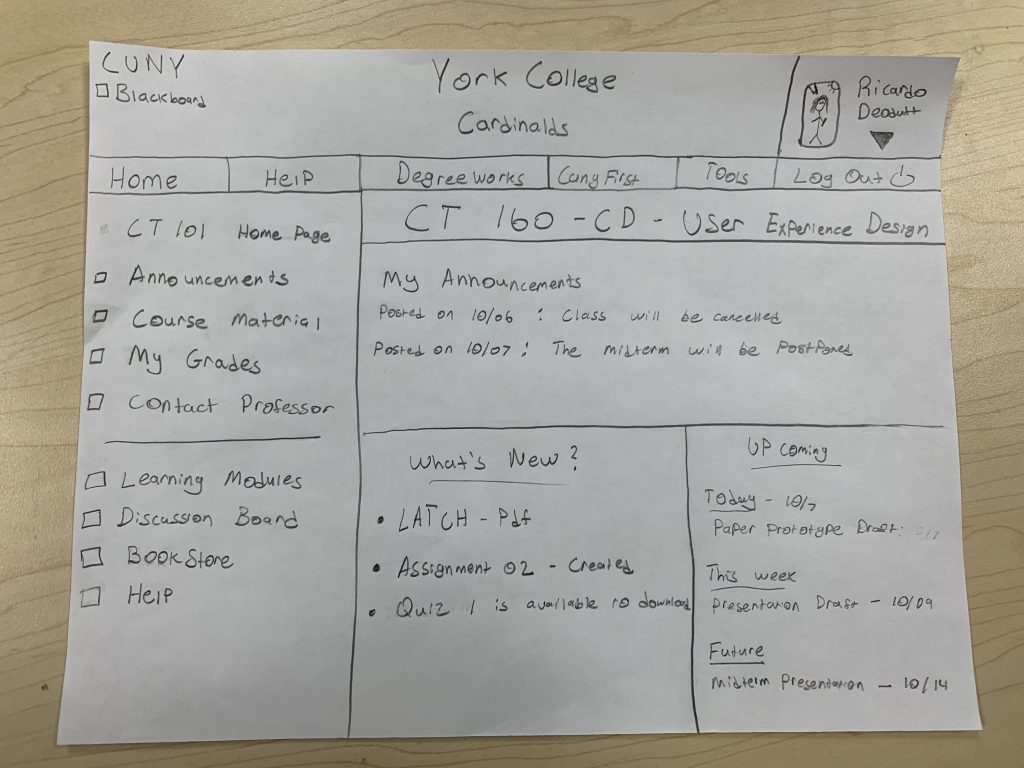 CUNY
Blackboard
York College
Cardinalds
Ricardo
Deodutt
Home
Help
Degreeworks
Cuny First
Tools
Log Out
CT 101 Home Page
CT 160 - CD - User Experience Design
Announcements
Course Material
My Grades
Contact Professor
Learning Modules
Discussion Board
Book Store
Help
My Announcements
Posted on 10/06 : Class will be cancelled
Posted on 10/07 : The midterm will be Postponed
What's New?
• LATCH - Pdf
• Assignment 02 - Created
• Quiz 1 is available to download
UP coming
Today - 10/7
Paper Prototype Draft:
This week
Presentation Draft - 10/09
Future
Midterm Presentation - 10/14